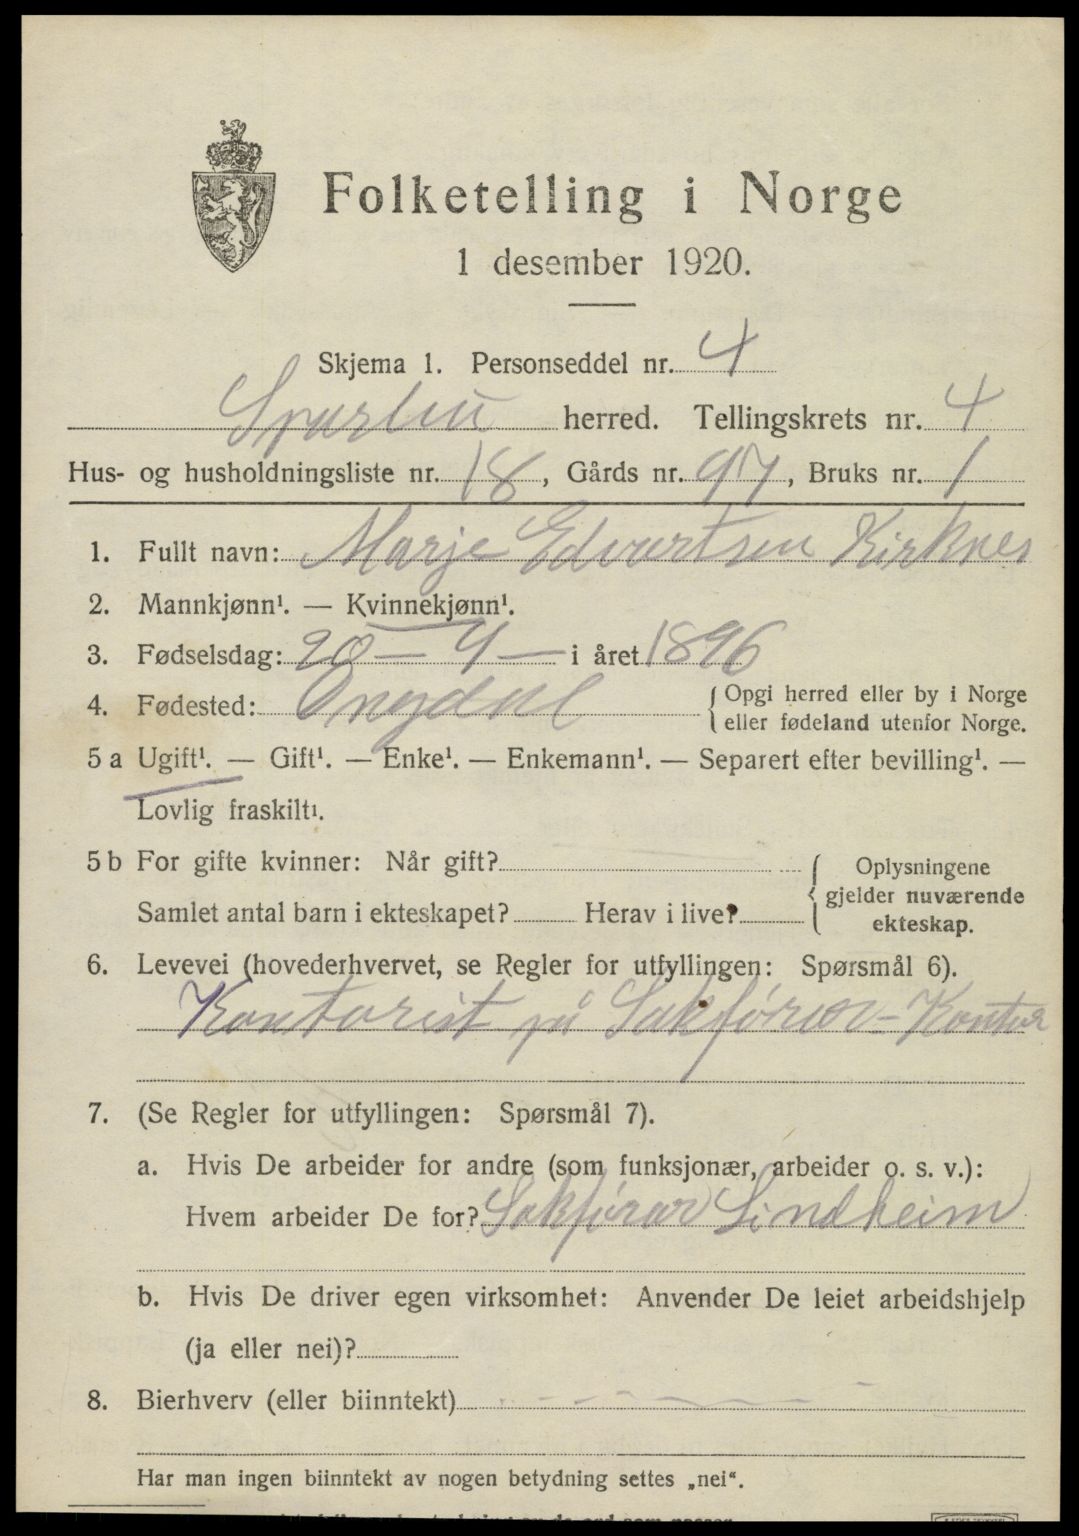 Folketelling i Norge
1 desember 1920.
Skjema 1. Personseddel nr. 4
Sparbu herred. Tellingskrets nr. 4
Hus- og husholdningsliste nr. 18, Gårds nr. 97, Bruks nr. 1
1. Fullt navn: Marje Edvartsen Kirknes
2. Mannkjønn¹. — Kvinnekjønn¹.
3. Fødselsdag: 20 — 4 — i året 1896
4. Fødested: { Opgi herred eller by i Norge
eller fødeland utenfor Norge.
5 a Ugift¹. — Gift¹. — Enke¹. — Enkemann¹. — Separert efter bevilling¹. —
Lovlig fraskilt¹.
5 b For gifte kvinner: Når gift? { Oplysningene
gjelder nuværende
Samlet antal barn i ekteskapet? Herav i live?
ekteskap.
6. Levevei (hovederhvervet, se Regler for utfyllingen: Spørsmål 6).
Kontorist på Sakfører-Kontor
7. (Se Regler for utfyllingen: Spørsmål 7).
a. Hvis De arbeider for andre (som funksjonær, arbeider o. s. v.):
Hvem arbeider De for? Sakfører Lindheim
b. Hvis De driver egen virksomhet: Anvender De leiet arbeidshjelp
(ja eller nei)?
8. Bierhverv (eller biinntekt)
Har man ingen biinntekt av nogen betydning settes „nei“.